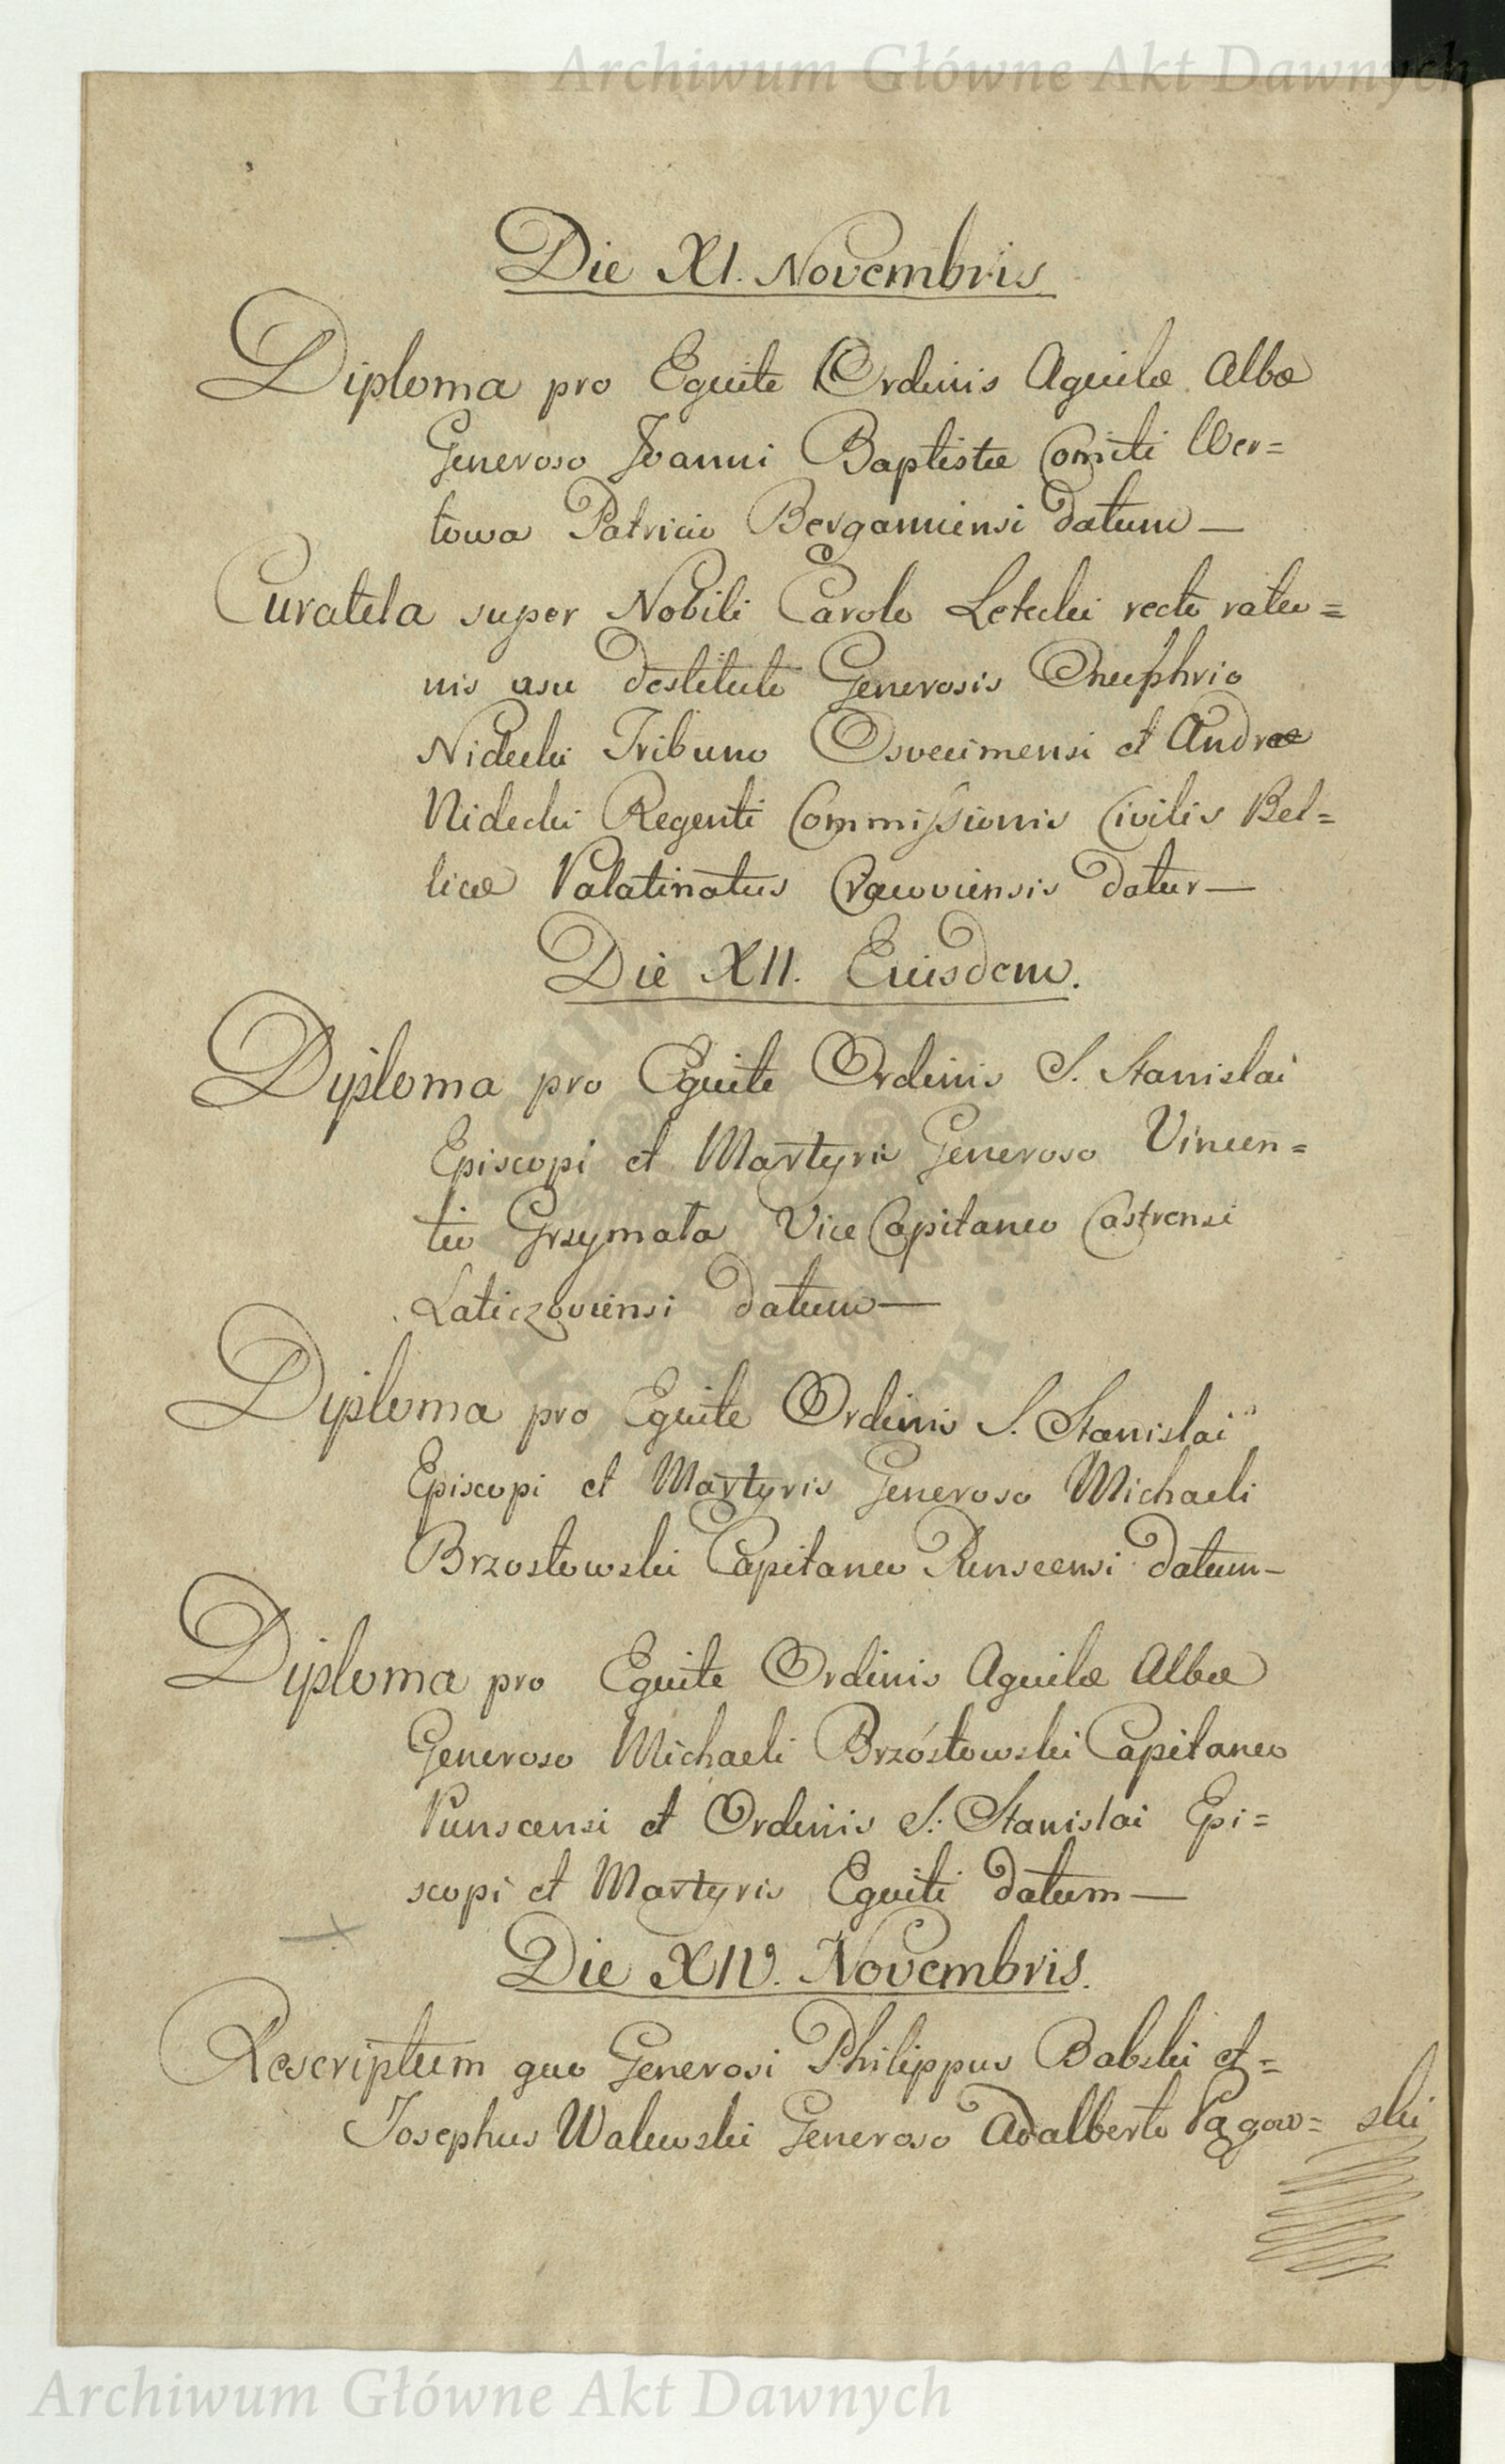 Archiwum Główne Akt Dawnych
Die XI. Novembris
Diploma pro Equite Ordinis Aquilæ Albæ
Generoso Joanni Baptistæ Comiti Ver=
towa Patricio Bergamensi datum —
Curatela super Nobili Carolo Letecki recto ratio=
nis usu destituto Generosis Onuphrio
Nidecki Tribuno Osvecimensi et Andreæ
Nidecki Regenti Commissionis Civilis Bel=
licæ Palatinatus Cracoviensis datur —
Die XII. Eiusdem.
Dyploma pro Equite Ordinis S. Stanislai
Episcopi et Martyris Generoso Vincen=
tio Grzymała Vice Capitaneo Castrensi
Laticzoviensi datum —
Diploma pro Equite Ordinis S. Stanislai
Episcopi et Martyris Generoso Michaeli
Brzostowski Capitaneo Punscensi datum —
Dyploma pro Equite Ordinis Aquilæ Albæ
Generoso Michaeli Brzóstowski Capitaneo
Punscensi et Ordinis S: Stanislai Epi=
scopi et Martyris Equiti datum —
Die XIV. Novembris.
Rescriptum quo Generosi Philippus Babski et=
Josephus Walewski Generoso Adalberto Pągow= ski
Archiwum Główne Akt Dawnych